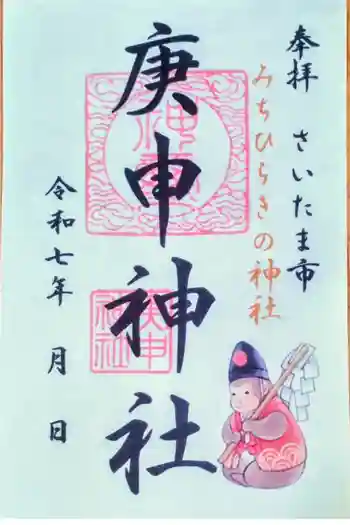 奉拝 さいたま市
みちひらきの神社
庚申神社
令和七年 月 日
庚申
神社